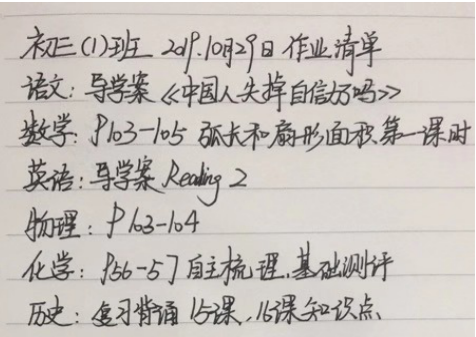 初三(1)班 2019.10月29日 作业清单
语文：导学案《中国人失掉自信力吗》
数学：P103-105 弧长和扇形面积第一课时
英语：导学案 Reading 2
物理：P103-104
化学：P56-57 自主梳理.基础测评
历史：复习背诵 15课，16课知识点